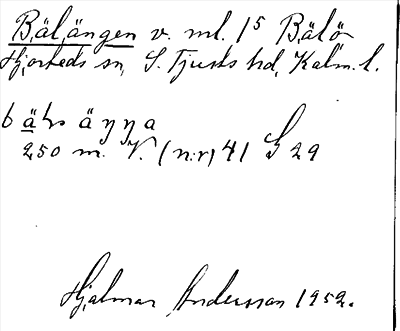 Bälängen v. ml. 1⁵ Bälö
Hjorteds sn, S. Tjusts hd, Kalm. l.
bä₂ äŋŋa
250 m. V. (n:r) 41 G 29
Hjalmar Andersson 1952.